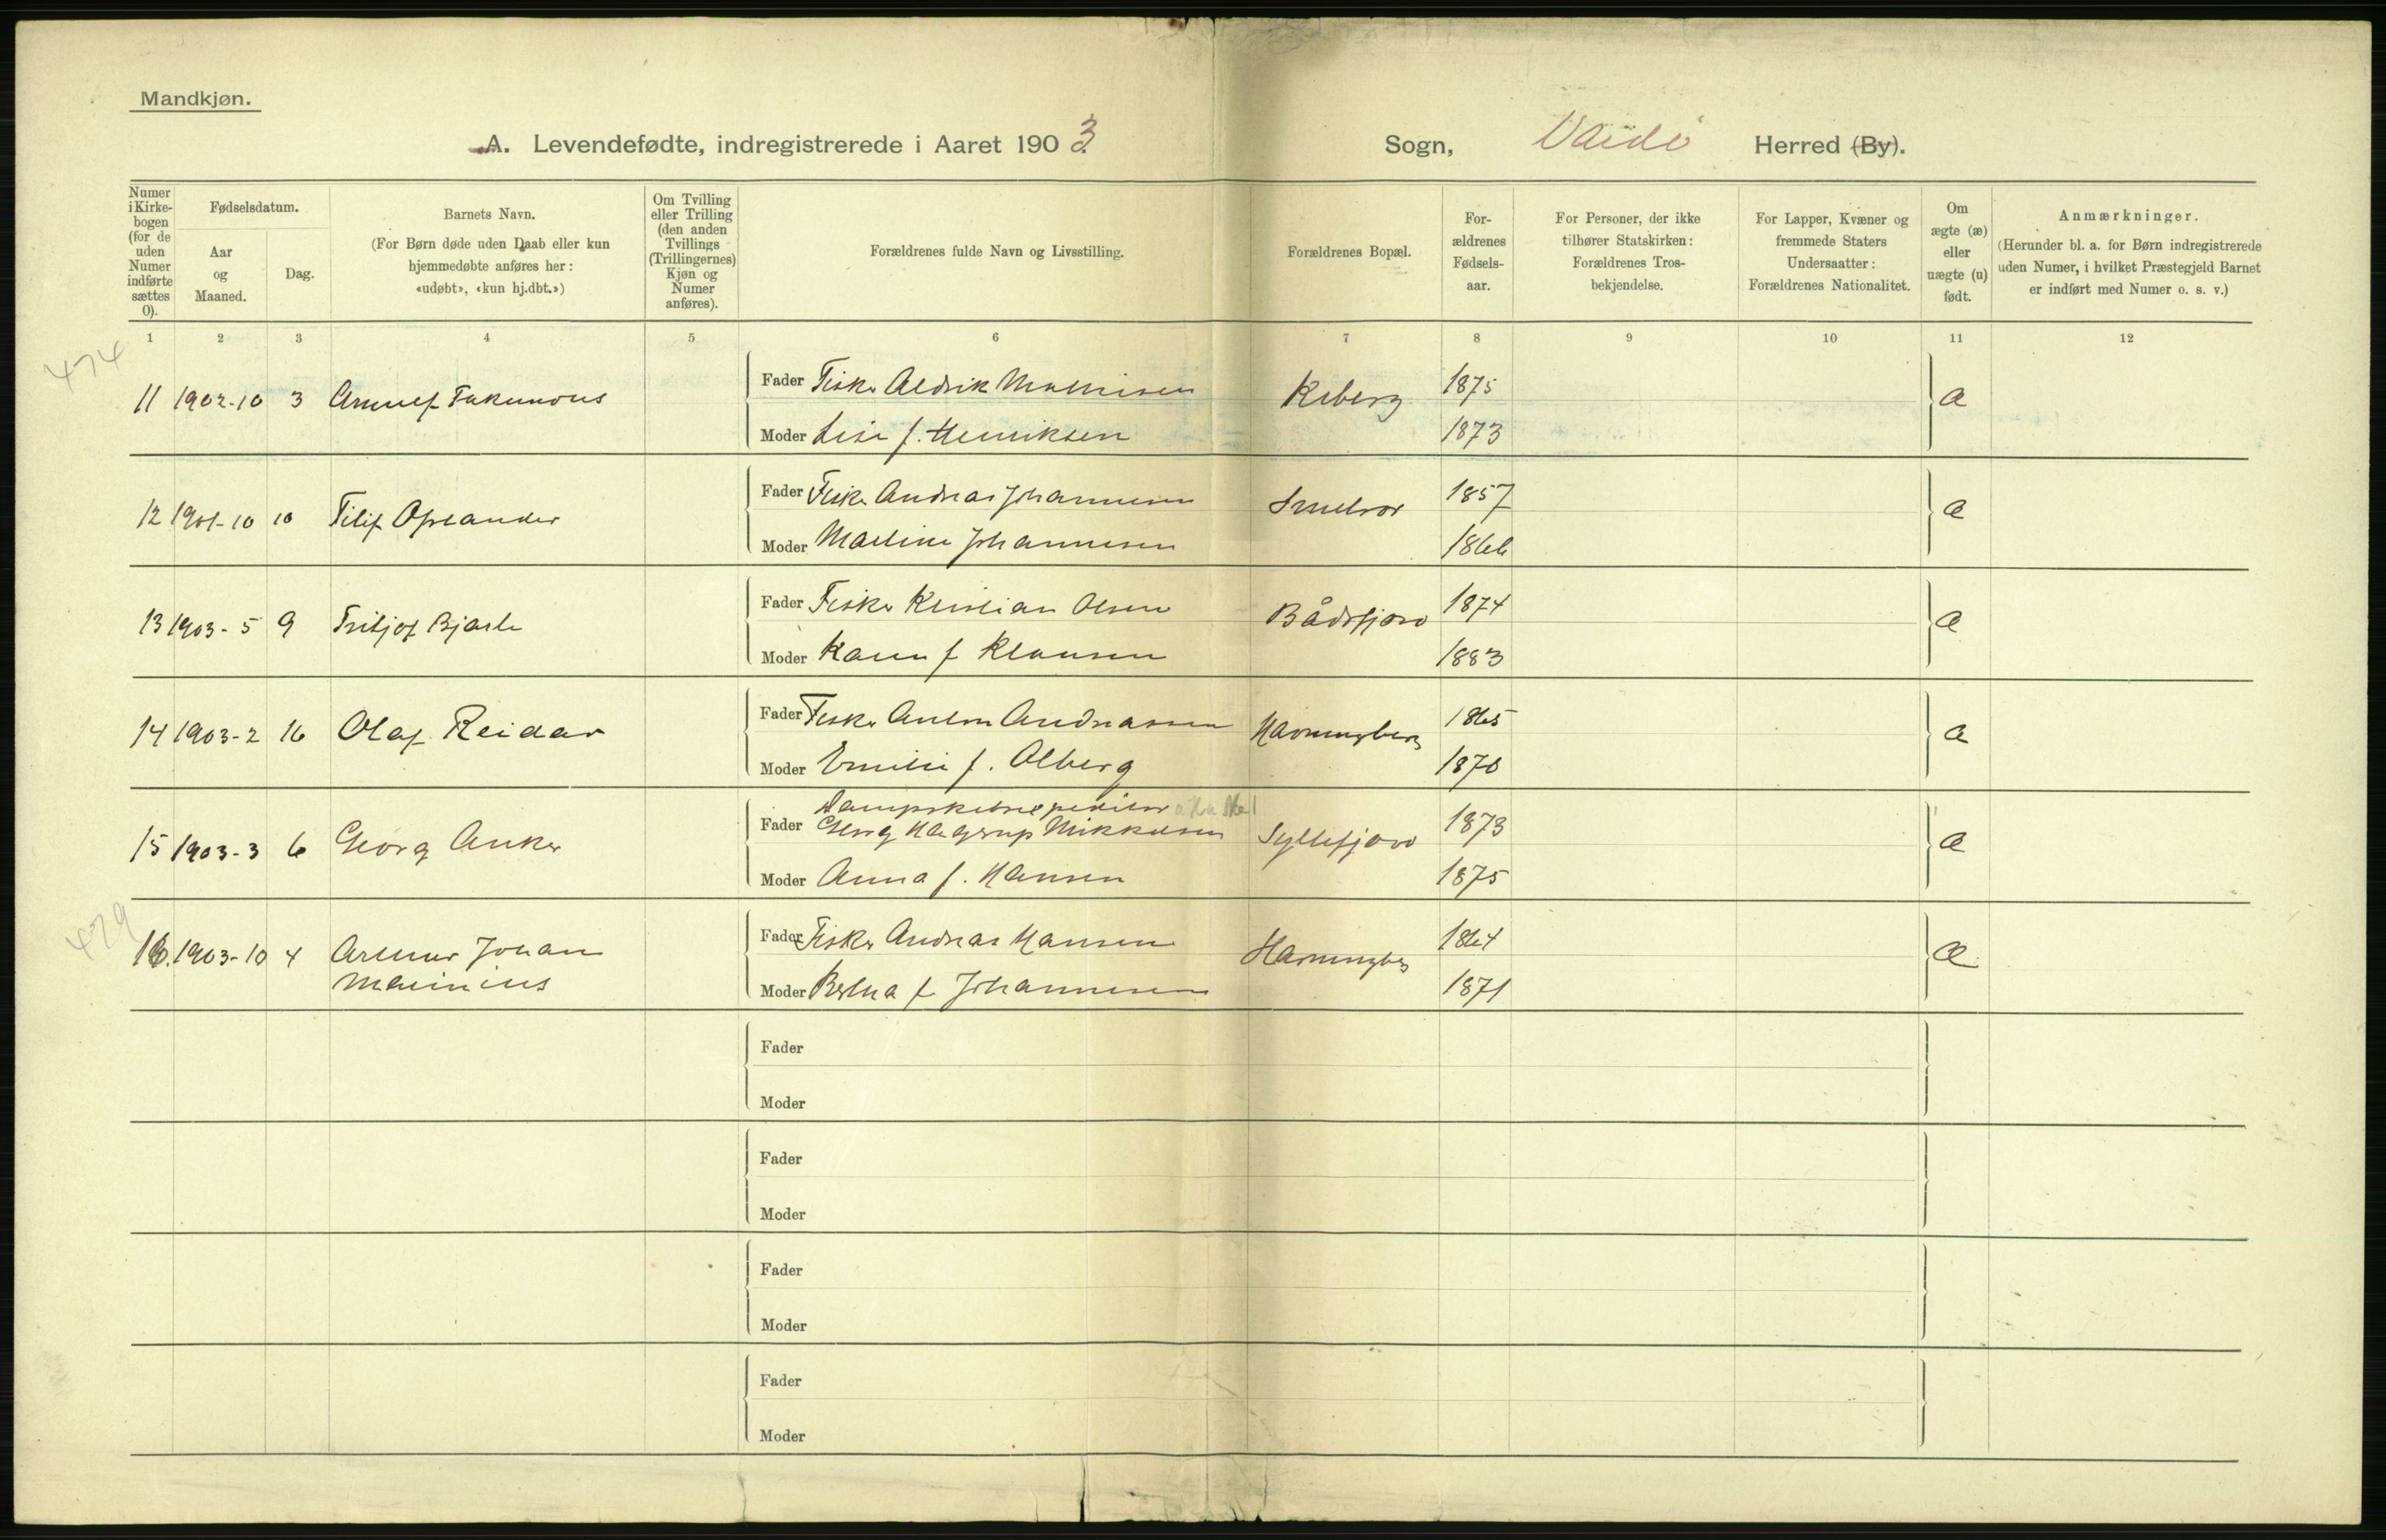 Mandkjøn.
A. Levendefødte, indregistrerede i Aaret 1903 Sogn, Vardø Herred (By).
Numer i Kirke-bogen (for de uden Numer indførte sættes 0).
Fødselsdatum.
Aar og Maaned.
Dag.
Barnets Navn.
(For Børn døde uden Daab eller kun hjemmedøbte anføres her: «udøbt», «kun hj.dbt.»)
Om Tvilling eller Trilling (den anden Tvillings (Trillingernes) Kjøn og Numer anføres).
Forældrenes fulde Navn og Livsstilling.
Forældrenes Bopæl.
For-ældrenes Fødsels-aar.
For Personer, der ikke tilhører Statskirken: Forældrenes Tros-bekjendelse.
For Lapper, Kvæner og fremmede Staters Undersaatter: Forældrenes Nationalitet.
Om ægte (æ) eller uægte (u) født.
Anmærkninger.
(Herunder bl. a. for Børn indregistrerede uden Numer, i hvilket Præstegjeld Barnet er indført med Numer o. s. v.)
1 2 3 4 5 6 7 8 9 10 11 12
474
11 1902-10 3
Fader Fisker Aldrik Kiberg 1875 æ
Moder Lise f. Henriksen 1873
12 1901-10 10 Filip
Fader Fisker Andreas Johannesen Smelror 1857 æ
Moder Johannesen 1866
13 1903-5 9 Fritjof Bjarle
Fader Fisker Kristian Olsen Bådsfjord 1874 æ
Moder f Klausen 1883
14 1903-2 16 Olaf Reidar
Fader Fisker Anton Andreassen Havningberg 1865 æ
Moder Emilie f. Olberg 1870
15 1903-3 6 Georg Anker
Dampskibsexpeditør
Fader Georg Hagerup Mikkelsen Syltefjord 1873 æ
Moder Anna f. Hansen 1875
479
16. 1903-10 4 Arthur Johan
Fader Fisker Andreas Hansen Havningberg 1864 æ
Moder f Johannesen 1871
Fader
Moder
Fader
Moder
Fader
Moder
Fader
Moder